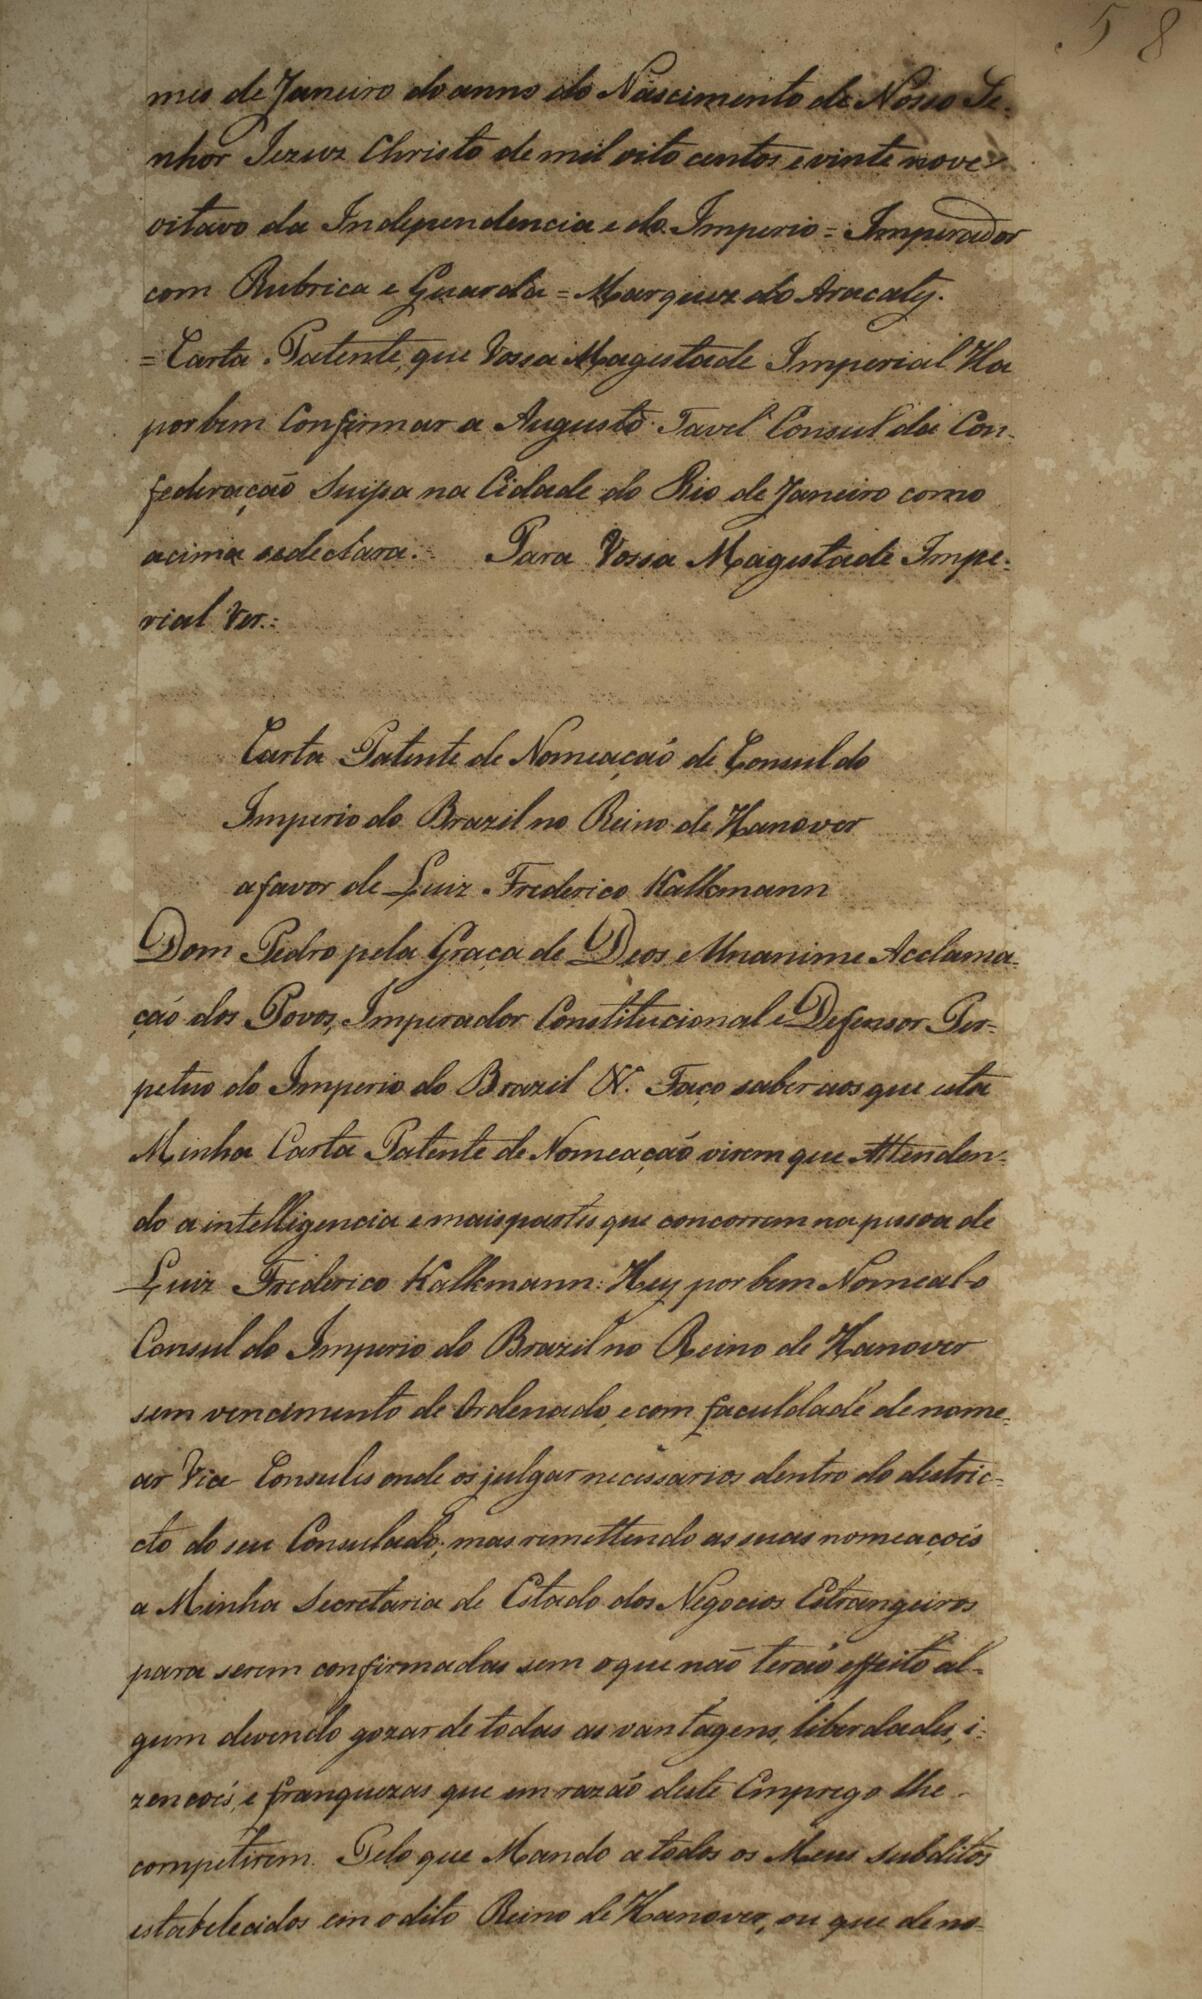 58
mes de Janeiro do anno do Nascimento de Nosso Se-
nhor Jezuz Christo de mil oito centos e vinte nove
oitavo da Independencia e do Imperio = Imperador
com Rubrica e Guarda = Marquez do Aracaty.
= Carta Patente, que Vossa Magestade Imperial Ha
por bem Confirmar a Augusto Tavel Consul da Con-
federação Suissa na Cidade do Rio de Janeiro como
acima se declara. Para Vossa Magestade Impe-
rial Ver.:
Carta Patente de Nomeação de Consul do
Imperio do Brazil no Reino de Hanover
a favor de Luiz Frederico Kalkmann
Dom Pedro pela Graça de Deos e Unanime Acclama-
ção dos Povos, Imperador Constitucional e Defensor Per-
petuo do Imperio do Brazil &. Faço saber aos que esta
Minha Carta Patente de Nomeação virem que Attenden-
do a intelligencia e mais partes que concorrem na pessoa de
Luiz Frederico Kalkmann: Hey por bem Nomeal-o
Consul do Imperio do Brazil no Reino de Hanover
sem vencimento de Ordenado, e com faculdade de nome-
ar Vice Consules onde os julgar necessarios dentro do distric-
cto do seu Consulado; mas remettendo as suas nomeações
a Minha Secretaria de Estado dos Negocios Estrangeiros
para serem confirmadas sem o que não terão effeito al-
gum devendo gozar de todas as vantagens, liberdades, i-
zenções, e franquezas que em razão deste Emprego lhe
competirem. Pelo que Mando a todos os Meus subditos
estabelecidos em o dito Reino de Hanover, ou que de no-